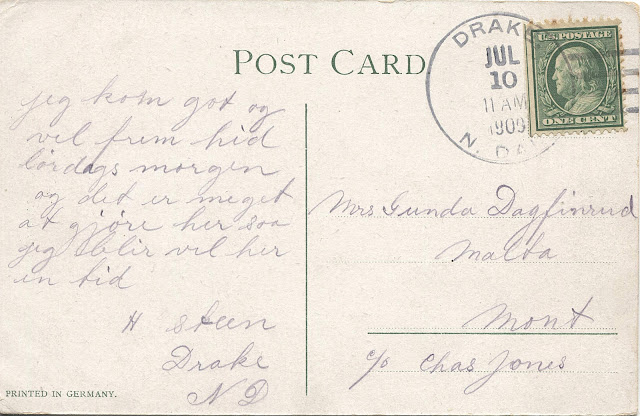 POST CARD
DRAKE
JUL
10
11 AM
1909
N. DA
U.S. POSTAGE
ONE CENT
jeg kom got og
vel frem hid
lørdags morgen
og det er meget
at gjøre her saa
jeg blir vel her
en tid
H Steen
Drake
ND
Mrs Gunda Dagfinrud
Malta
Mont
c/o Chas Jones
PRINTED IN GERMANY.